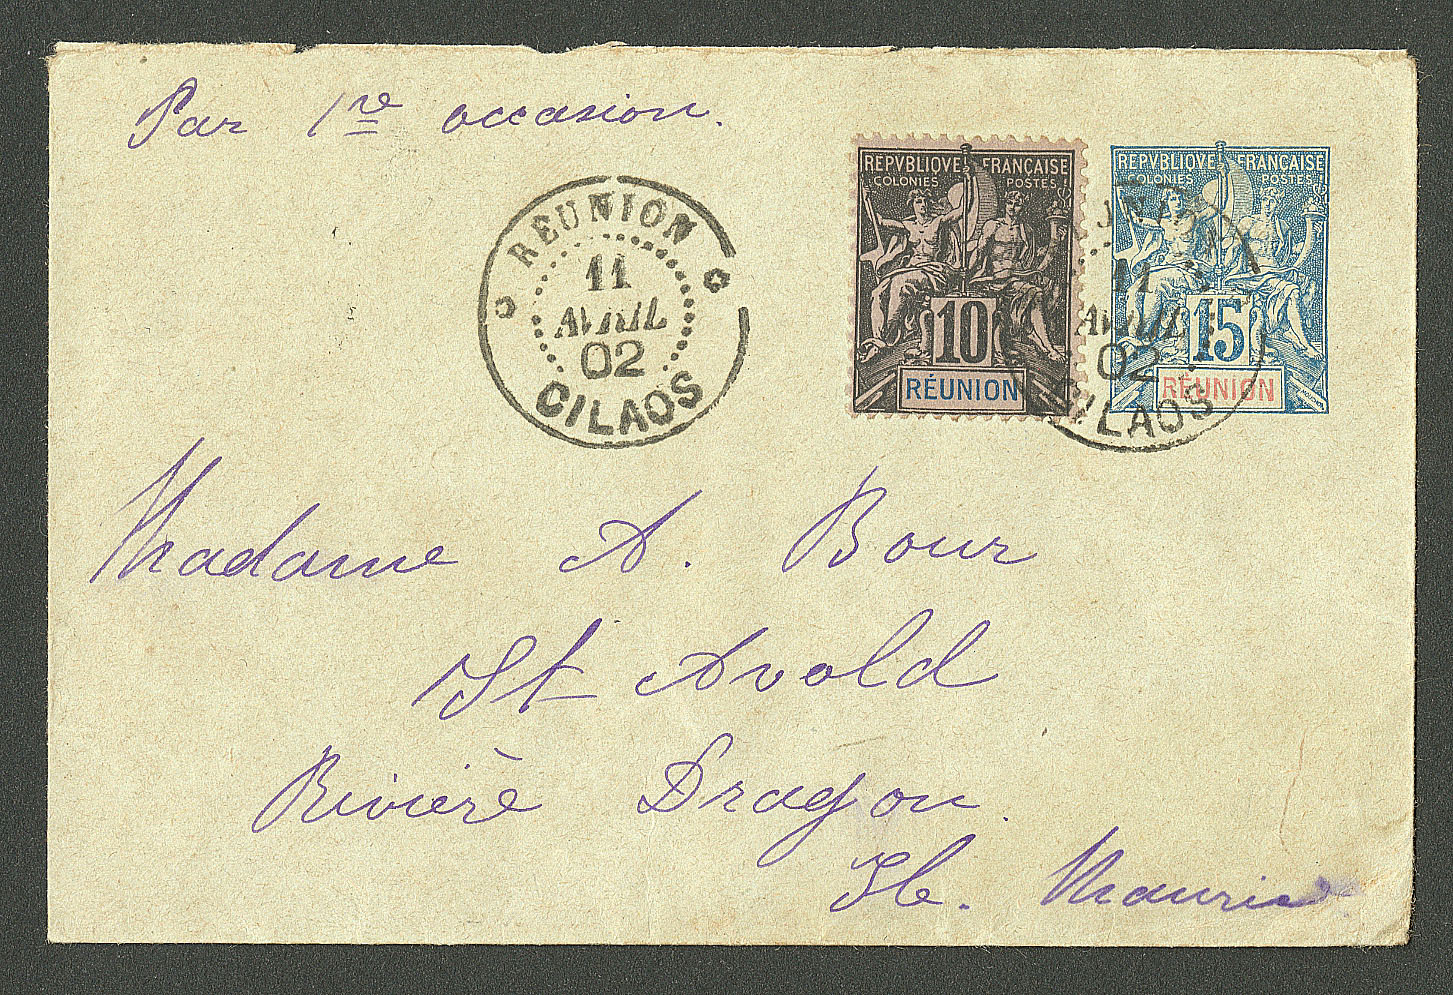 Par 1re occasion.
REPVBLIQVE FRANÇAISE
COLONIES POSTES
10
RÉUNION
REPVBLIQVE FRANÇAISE
COLONIES POSTES
15
RÉUNION
RÉUNION
11
AVRIL
02
CILAOS
11
AVRIL
02
CILAOS
Madame A. Bour
St Avold
Rivière Dragon.
Ile. Maurice